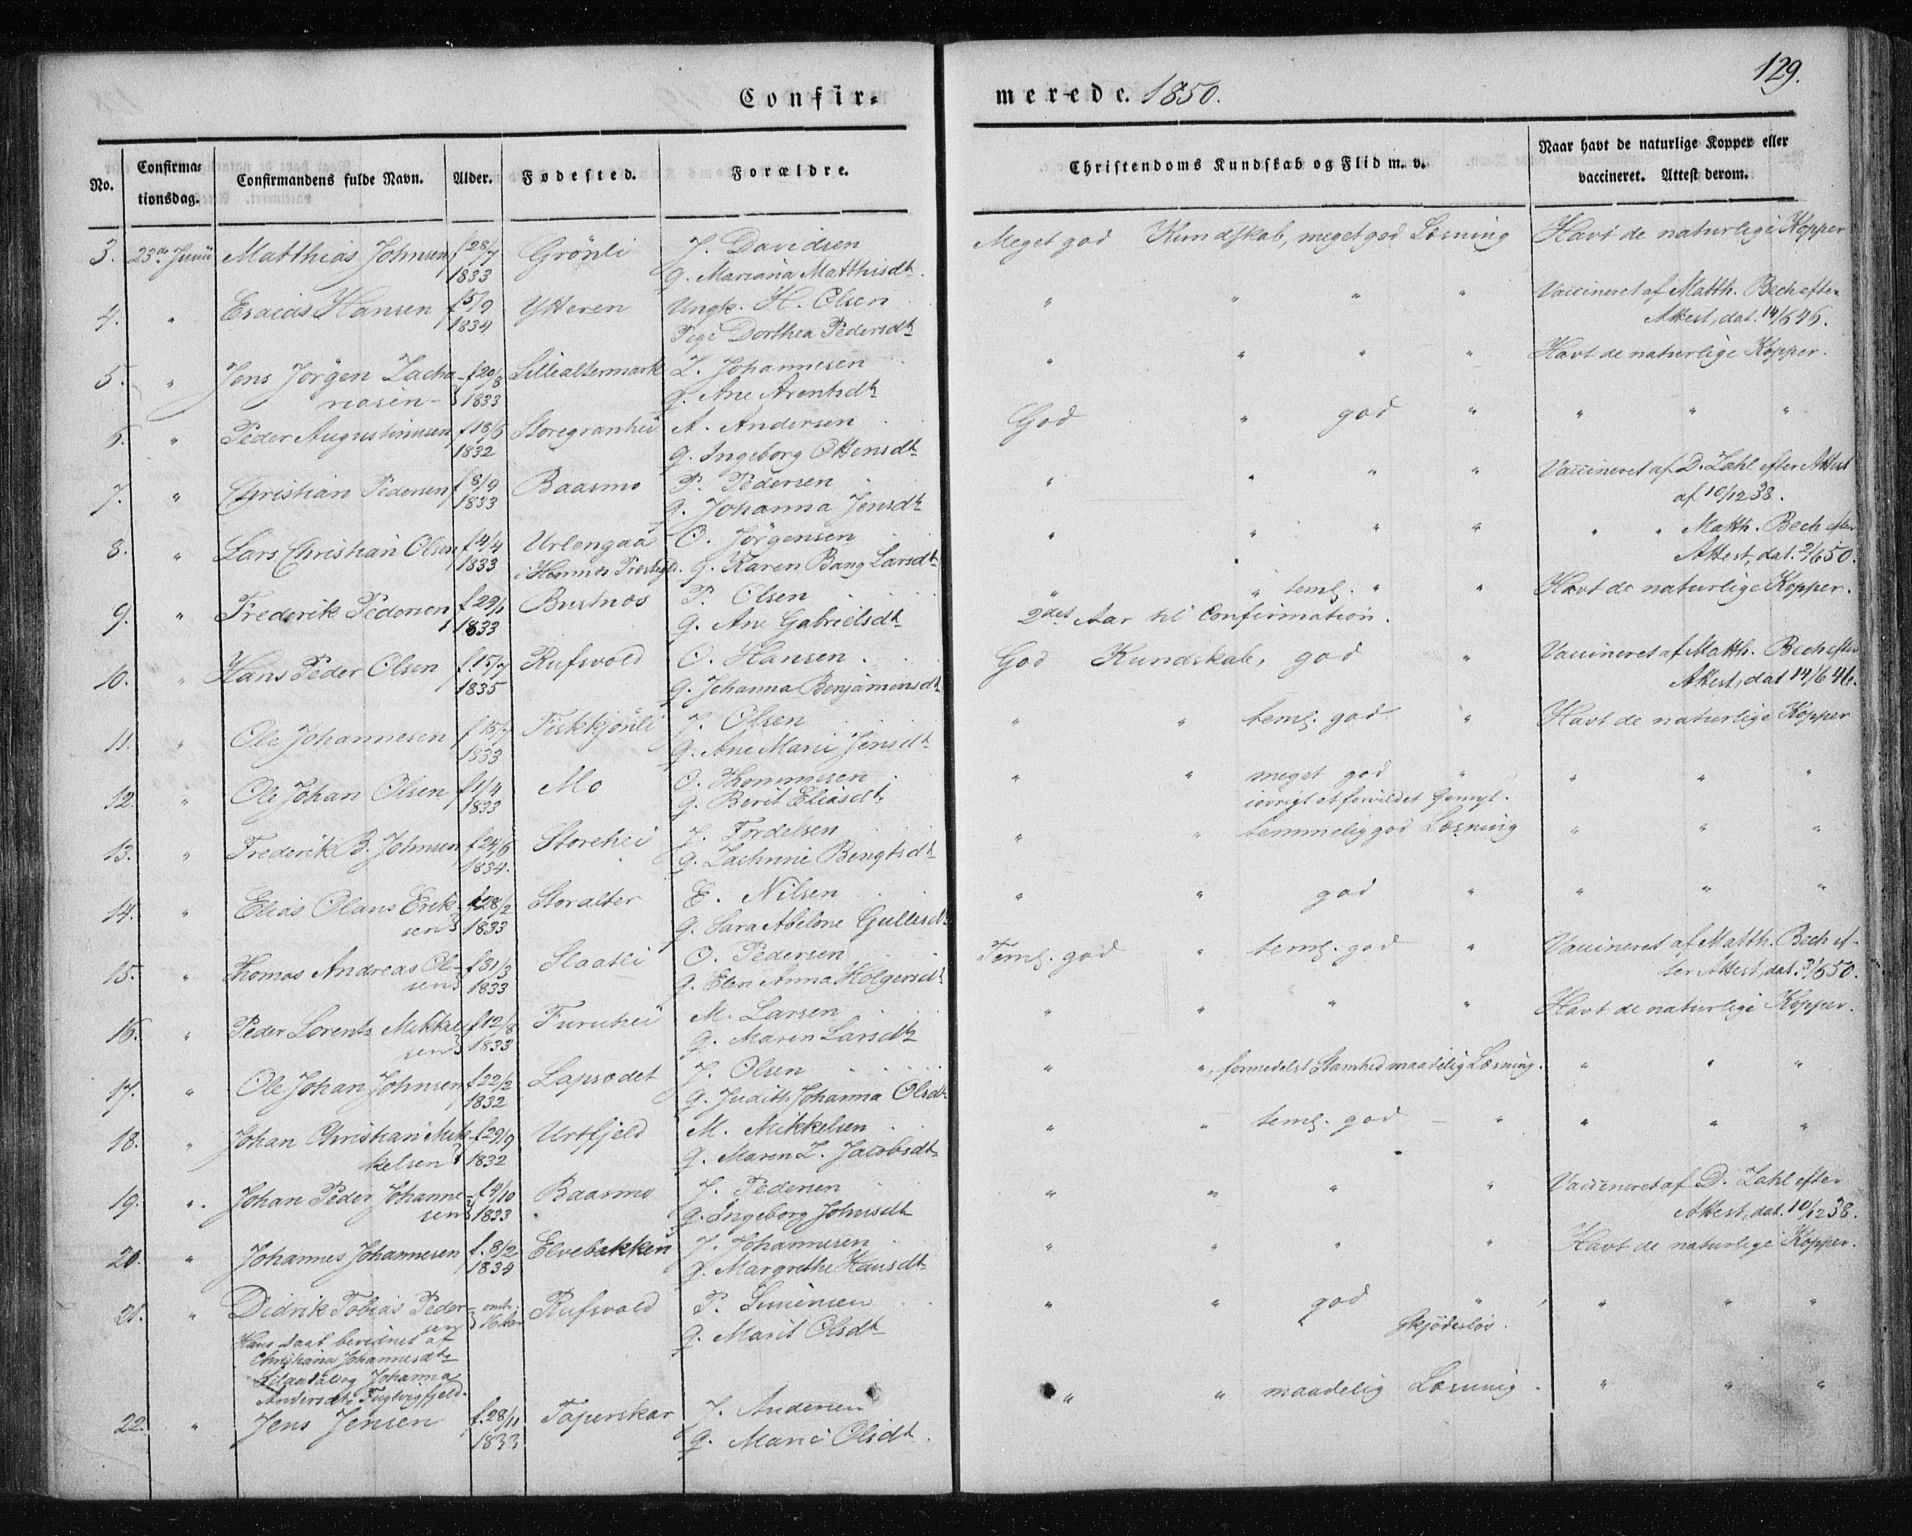 129.
Confir- merede. 1850.
No. Confirma-tionsdag. Confirmandens fulde Navn. Alder. Fødested. Forældre. Christendoms Kundskab og Flid m. v. Naar havt de naturlige Kopper eller vaccineret. Attest derom.
3. 23de Junii Matthias Johnsen f 28/7 Grönli J. Davidsen Meget god Kundskab, meget god Læsning Havt de naturlige Kopper
1833 g. Mariana Matthisdtr.
4. " Esaias Hansen f 5/9 Ytteren Ungk. H. Olsen " " " " Vaccineret af Matth. Bech efter
1834 Pige Dorthea Pedersdtr Attest, dat. 14/6 46.
5. " Jens Jörgen Zacha- f 20/8 Lillealtermark Z. Johannesen " " " " Havt de naturlige Kopper.
riasen 1833 g. Ane Arentsdtr
6. " Peder Augustinusen f 18/6 Storegranhei A. Andersen God " god " " " "
1832 g. Ingeborg Ottensdtr
7. " Christian Pedersen f 8/9 Baasmo P. Pedersen " " " " Vaccineret af D. Zahl efter Attest
1833 g. Johanna Jensdtr af 10/12 38.
8. " Lars Christian Olsen f 4/4 Urlengaa O. Jörgensen " " " " " " Matth. Bech efter
1833 i Hemnes Prestegd. g. Karen Bang Larsdtr Attest, dat. 2/6 50.
9. " Frederik Pedersen f 29/1 Bustnæs P. Olsen " " teml. " " Havt de naturlige Kopper.
1833 g. Ane Gabrielsdtr 2det Aar til Confirmation.
10. " Hans Peder Olsen f. 15/7 Rufsvold O. Hansen God Kundskab, god " Vaccineret af Matth. Bech efter
1835 g. Johanna Benjaminsdtr Attest, dat 14/6 46.
11. " Ole Johannesen f 15/7 Fiskkjönli J. Olsen " " teml. god " Havt de naturlige Kopper
1833 g. Ane Marie Jensdtr
12. " Ole Johan Olsen f 1/4 Mo O. Thommesen " " meget god " " " "
1833 g. Berit Eliasdtr iövrigt et forvildet Gemyt.
13. " Frederik B. Johnsen f 24/6 Storehei J. Fordelsen " " temmelig god Læsning " " "
1834. g. Zachrine Bengtsdtr
14. " Elias Olaus Erik- f 28/2 Storalter E. Nilsen " " god " " " "
sen 1833 g. Sara Abelone Gullesdtr
15. " Thomas Andreas Ol- f 31/3 Slaatli O. Pedersen Teml. god " teml. god " Vaccineret af Matth. Bech ef-
sen 1833 g. Elen Anna Holgersdtr ter Attest, dat. 3/6 50.
16. " Peder Lorents Mikkel- f 12/8 Furuhei M. Larsen " " " " Havt de naturlige Kopper.
sen 1833 g. Maren Larsdtr
17. " Ole Johan Johnsen f 22/2 Lapsodet J. Olsen " ", formedelst Stamhed maadelig Læsning. " " "
1832 g. Judith Johanna Olsdtr
18. " Johan Christian Mik- f 29/9 Urtfjeld M. Mikkelsen " " teml. god " " " "
kelsen 1832 g. Maren Z. Jacobsdtr
19. " Johan Peder Johanne- f 4/10 Baasmo J. Pedersen " " " " Vaccineret af D. Zahl efter
sen 1833 g. Ingeborg Johnsdtr Attest, dat. 10/12 38.
20. " Johannes Johannesen f. 8/2 Elvebakken J. Johannesen " " " " Havt de naturlige Kopper.
1834 g. Margrethe Hansdtr
21. " Didrik Tobias Peder- omtr. Rufsvold P. Simensen " " god " " " "
sen 16 Aar g. Marit Olsdtr skjödeslös.
Hans Daab bevidnet af
Christiana Johannesdtr
og Johanna
Andersdtr Fuglvigfjeld.
22. " Jens Jensen f. 28/11 Tajurskar J. Andersen " " maadelig Læsning. " " "
1833 g. Marie Olsdtr.